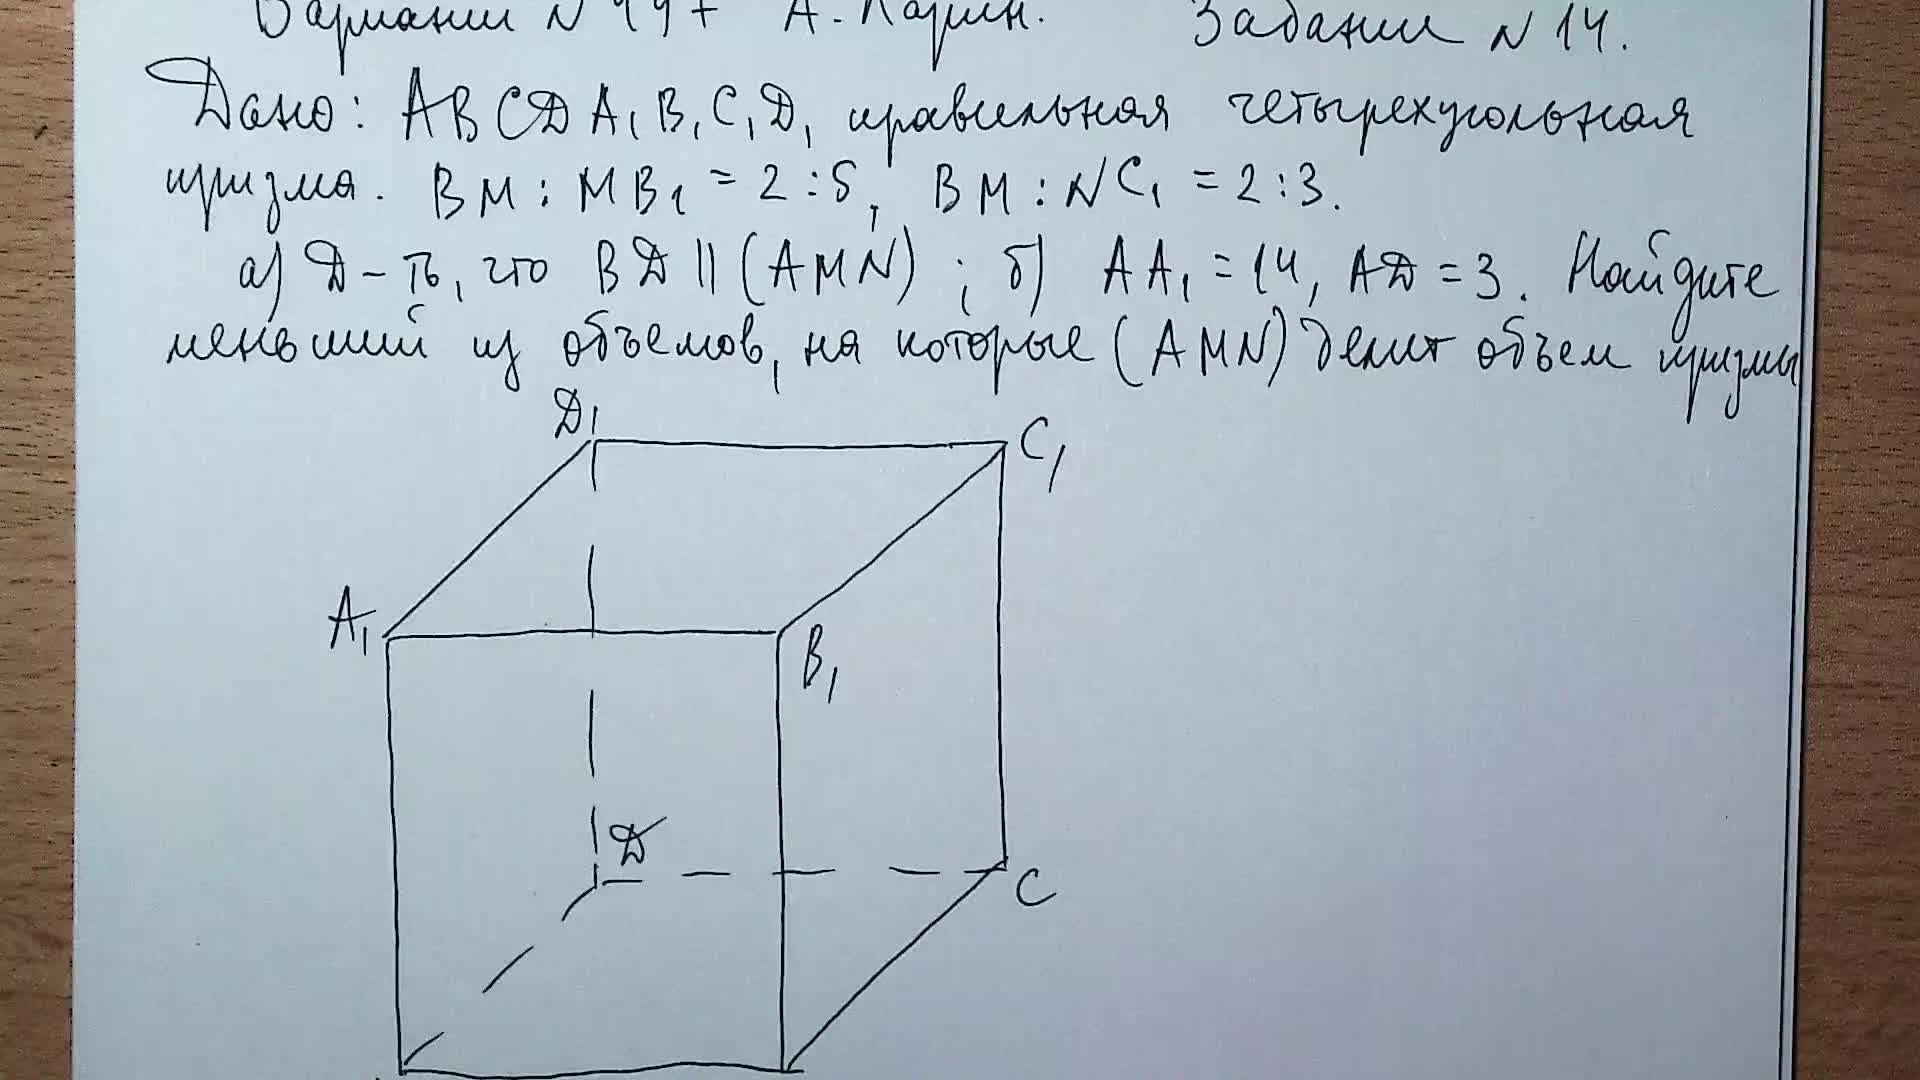 Вариант N А. Ларин. Задание N 14.
Дано: ABCDA₁B₁C₁D₁ правильная четырехугольная
призма. BM : MB₁ = 2 : 5, BM : NC₁ = 2 : 3.
а) Д-ть, что BD || (AMN) ; б) AA₁ = 14, AD = 3. Найдите
меньший из объемов, на которые (AMN) делит объем призмы
D₁
C₁
A₁
B₁
D
C